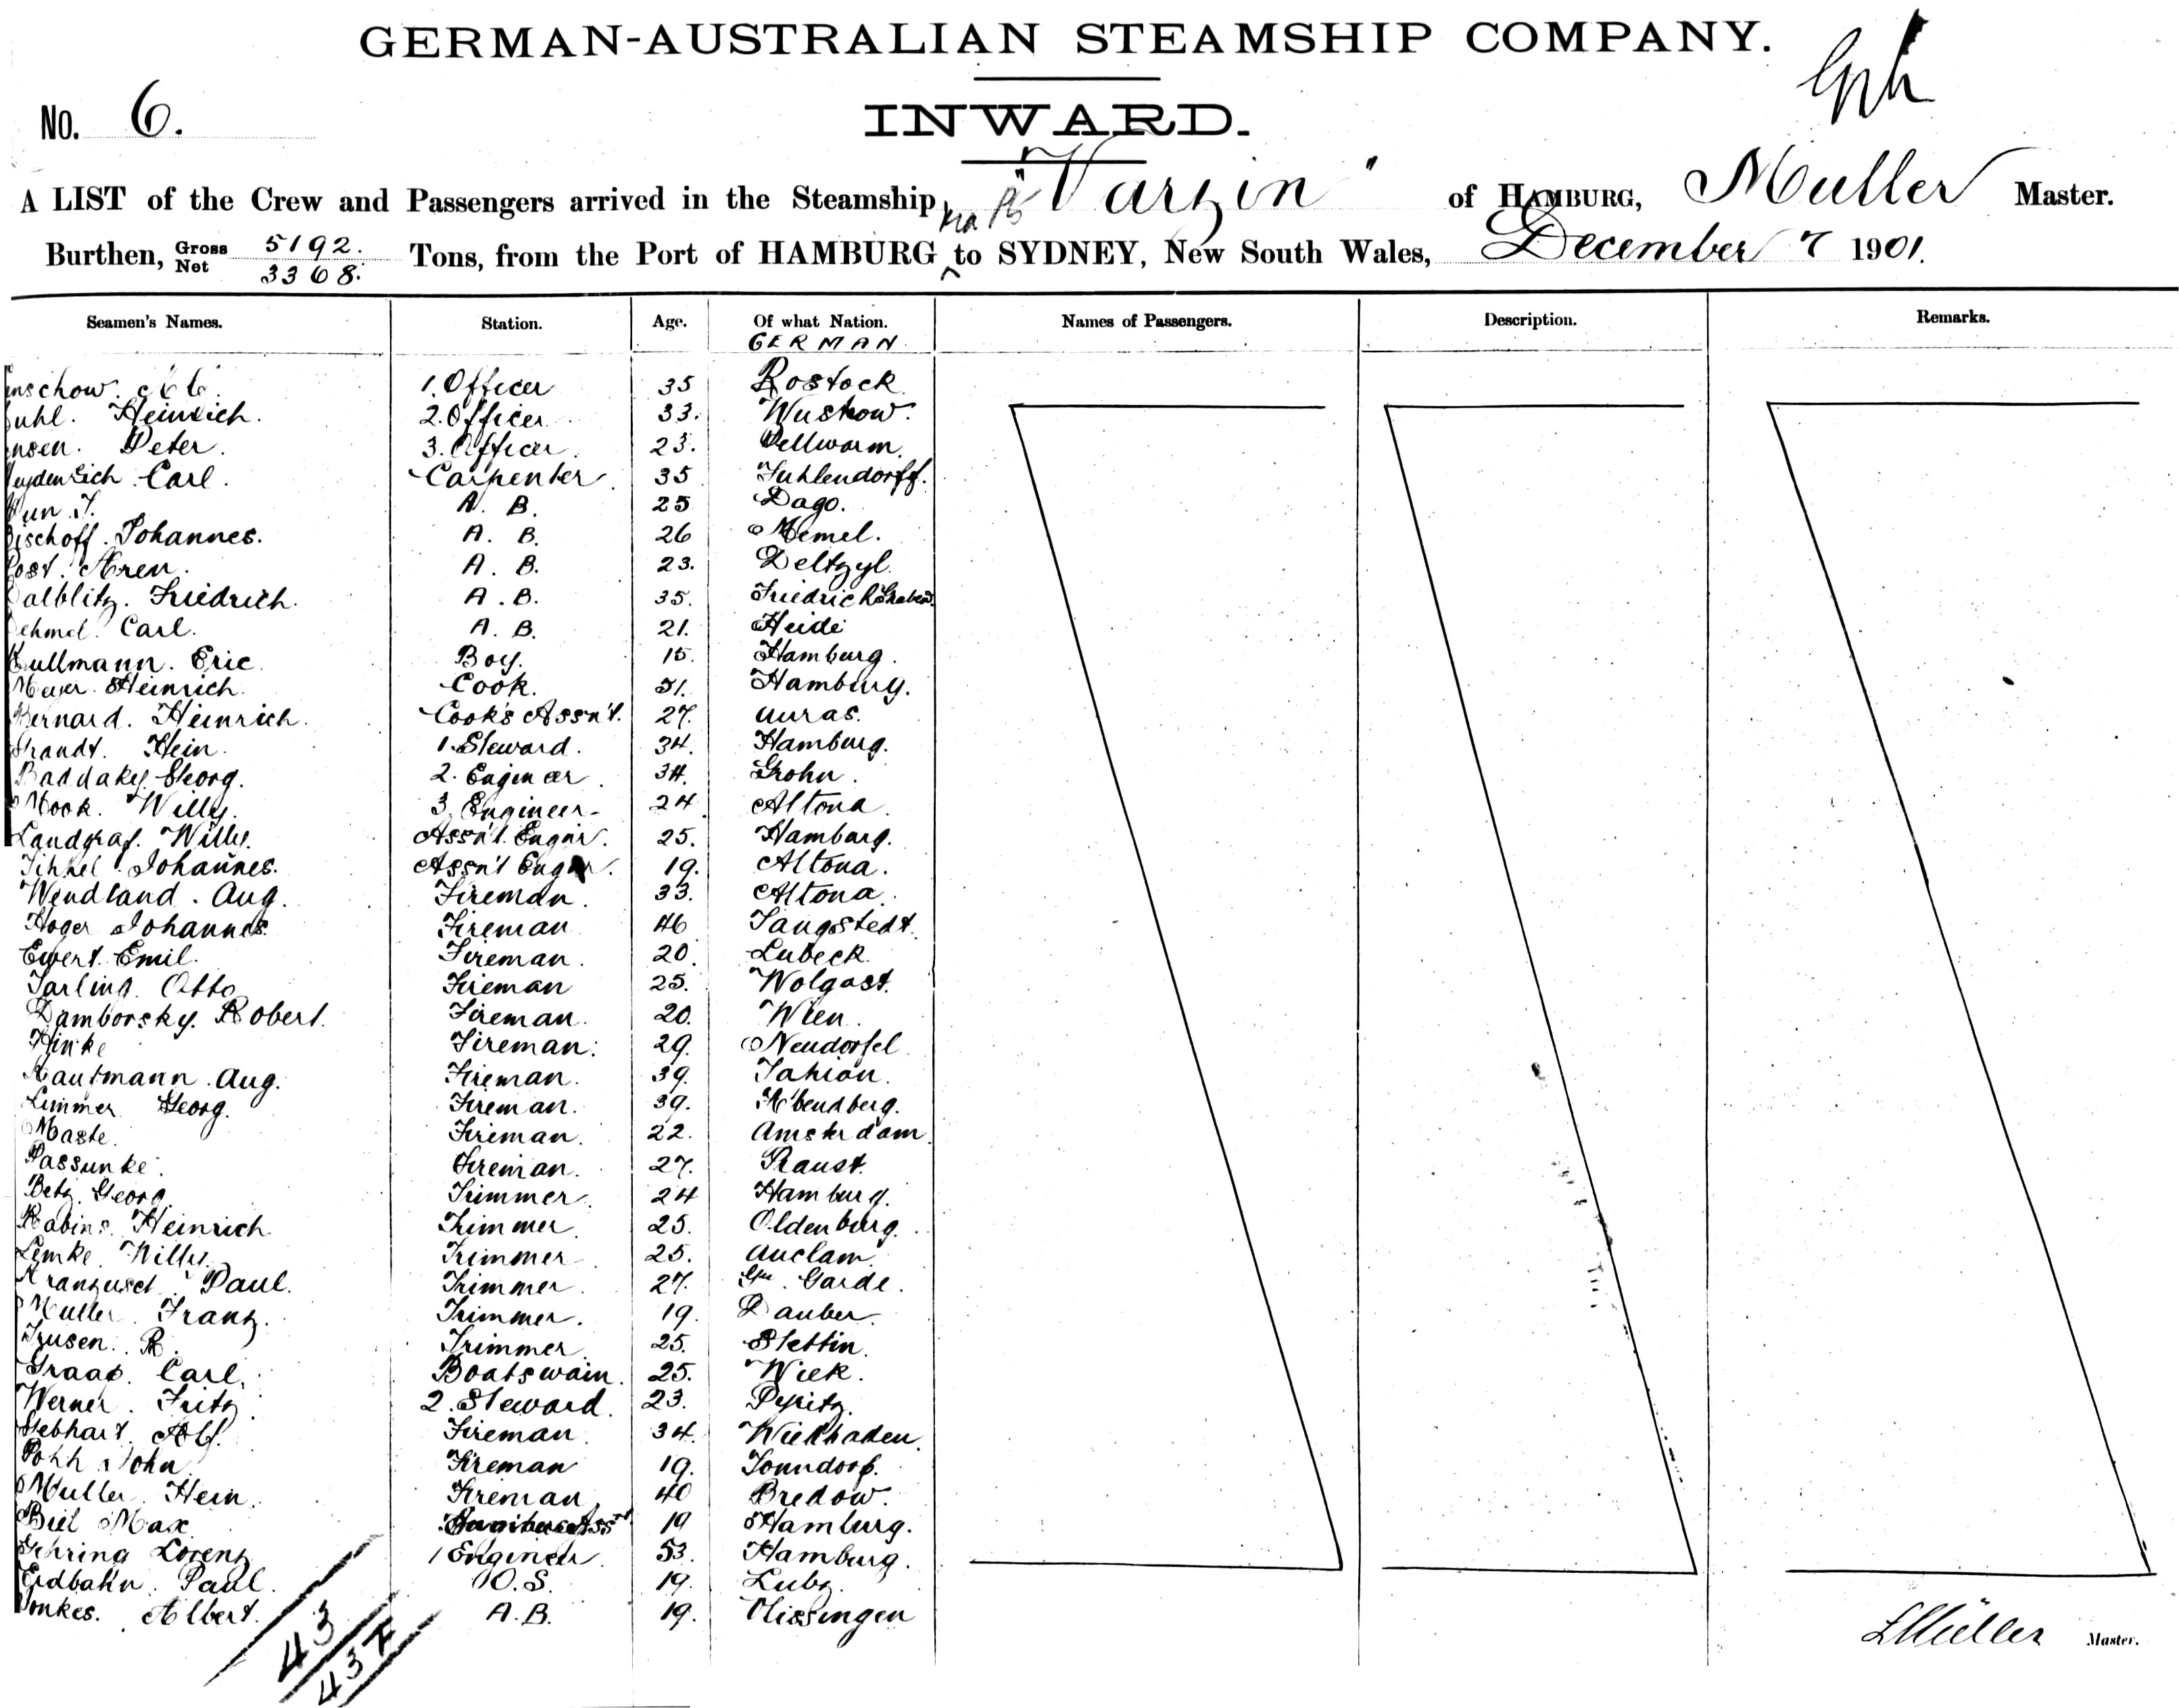 GERMAN-AUSTRALIAN STEAMSHIP COMPANY.
No. 6.
INWARD.
A LIST of the Crew and Passengers arrived in the Steamship "Varzin" of HAMBURG, Muller Master.
Burthen, Gross 5192. Net 3368. Tons, from the Port of HAMBURG to SYDNEY, New South Wales, December 7 1901.
Seamen's Names. Station. Age. Of what Nation. Names of Passengers. Description. Remarks.
GERMAN
1. Officer 35 Rostock
Heinrich. 2. Officer 33. Wustrow.
Peter. 3. Officer 23. Pellworm.
Carl. Carpenter 35 Fuhlendorff.
A. B. 25 Dago.
Bischoff. Johannes. A. B. 26 Memel.
Post. A. B. 23. Deltzyl.
Friedrich. A. B. 35.
Carl. A. B. 21. Heide
Kullmann. Eric. Boy. 15. Hamburg.
Meyer. Heinrich. Cook. 51. Hamburg.
Bernard. Heinrich. Cook's Assn't. 27. Auras.
Brandt. Hein. 1. Steward. 34. Hamburg.
Baddaky. Georg. 2. Engineer 34. Grohn.
Mook. Willy. 3. Engineer 24 Altona
Landgraf. Willy. Assn't. Engnr. 25. Hamburg.
Johannes. Assn't Engnr. 19. Altona.
Wendland. Aug. Fireman. 33. Altona.
Hoger Johannes. Fireman 46 Tangstedt.
Ewert. Emil. Fireman. 20. Lubeck.
Jarling. Otto Fireman 25. Wolgast.
Damborsky. Robert. Fireman. 20. Wien.
Hinke Fireman. 29. Neudorfel
Kaufmann. Aug. Fireman. 39.
Limmer Georg. Fireman. 39. Abendberg.
Maste. Fireman. 22. Amsterdam
Passunke. Fireman. 27. Praust.
Betz. Georg. Trimmer. 24 Hamburg.
Rabins. Heinrich Trimmer. 25. Oldenburg.
Lemke. Willy. Trimmer 25. Anclam.
Paul. Trimmer. 27. Garde.
Muller. Franz. Trimmer. 19. Dauber.
R. Trimmer. 25. Stettin.
Graap. Carl. Boatswain. 25. Wiek.
Werner. Fritz. 2. Steward. 23. Pyritz.
Gebhart. Fireman. 34. Wiesbaden.
John Fireman 19. Tonndorf.
Muller. Hein. Fireman. 40 Bredow.
Biel Max. 19 Hamburg.
Gehring Lorenz 1 Engineer. 53. Hamburg.
Erdbahn. Paul. O.S. 19. Lubz.
Albert. A.B. 19. Vlissingen
43
LMüller Master.